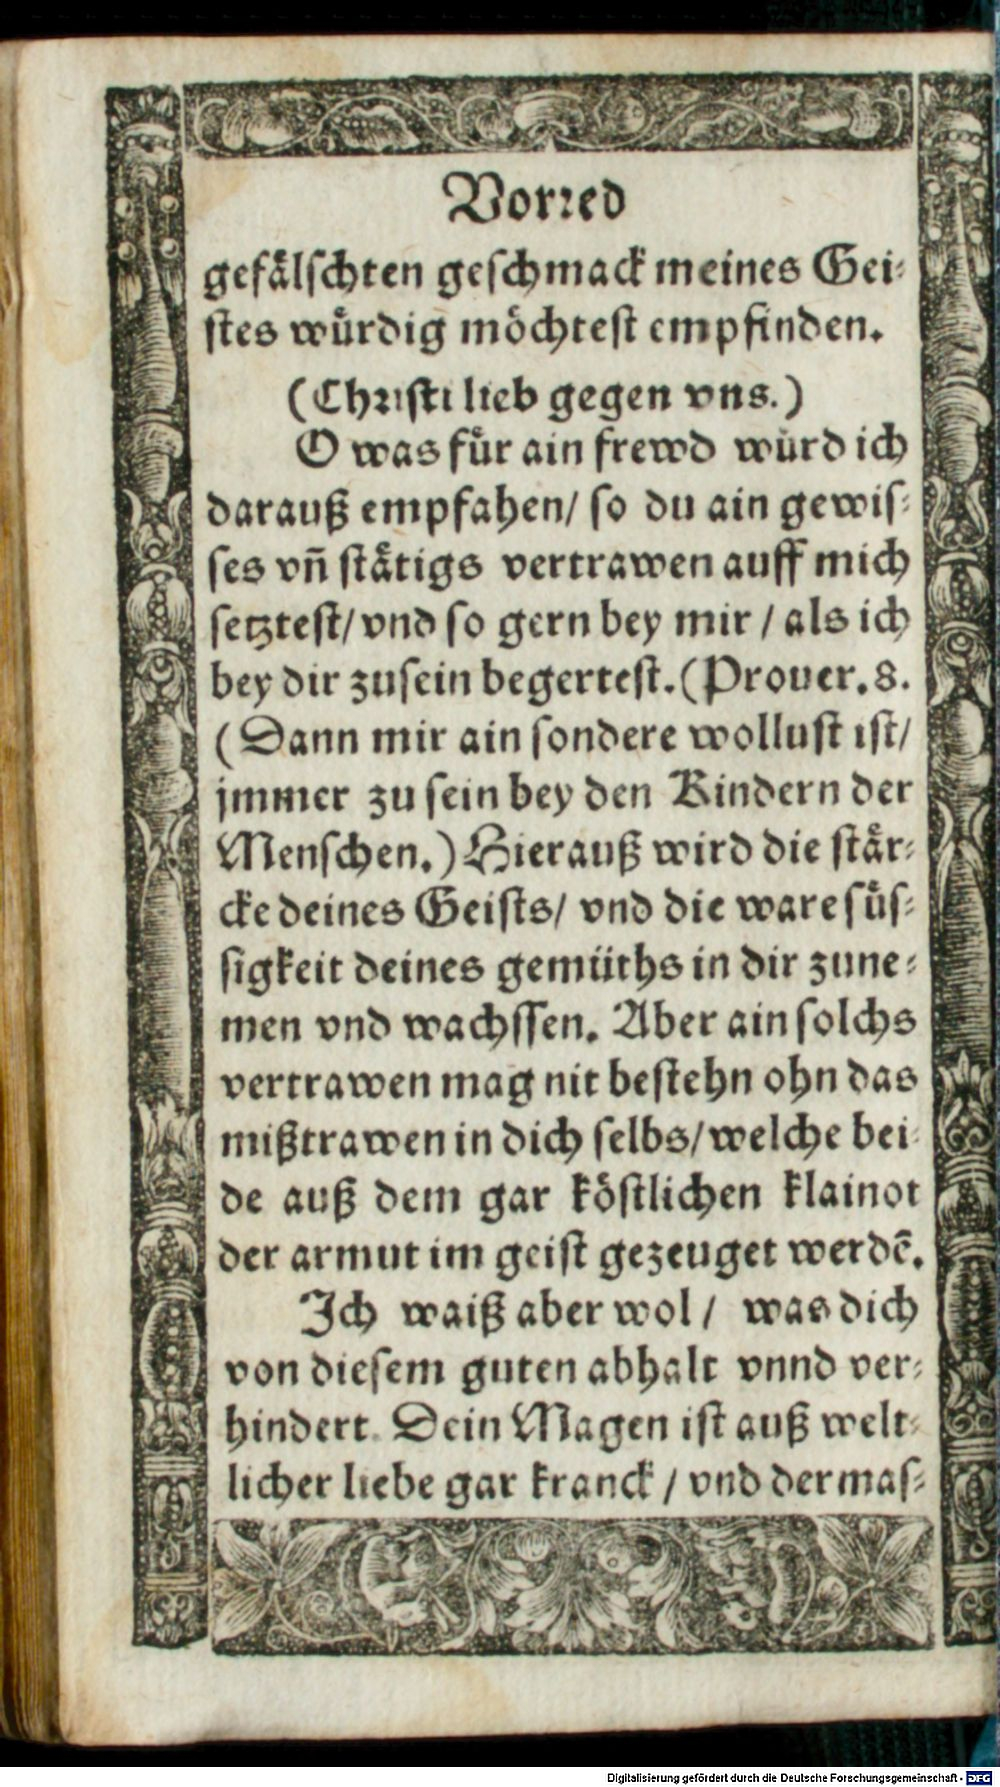 Vorꝛed
gefaͤlſchten geſchmack meines Gei⸗
ſtes wuͤrdig moͤchteſt empfinden.
(Chꝛiſti lieb gegen vns.)
O was fuͤr ain frewd wuͤrd ich
darauß empfahen/ ſo du ain gewiſ⸗
ſes vñ ſtaͤtigs vertrawen auff mich
ſetzteſt/ vnd ſo gern bey mir / als ich
bey dir zuſein begerteſt. (Prouer. 8.
(Dann mir ain ſondere wolluſt iſt/
jmmer zu ſein bey den Kindern der
Menſchen.) Hierauß wird die ſtaͤr⸗
cke deines Geiſts/ vnd die ware ſuͤſ⸗
ſigkeit deines gemuͤths in dir zune⸗
men vnd wachſſen. Aber ain ſolchs
vertrawen mag nit beſtehn ohn das
mißtrawen in dich ſelbs/ welche bei⸗
de auß dem gar koͤſtlichen klainot
der armut im geiſt gezeuget werdẽ.
Ich waiß aber wol / was dich
von dieſem guten abhalt vnnd ver⸗
hindert. Dein Magen iſt auß welt⸗
licher liebe gar kranck / vnd der maſ⸗
Digitalisierung gefördert durch die Deutsche Forschungsgemeinschaft - DFG